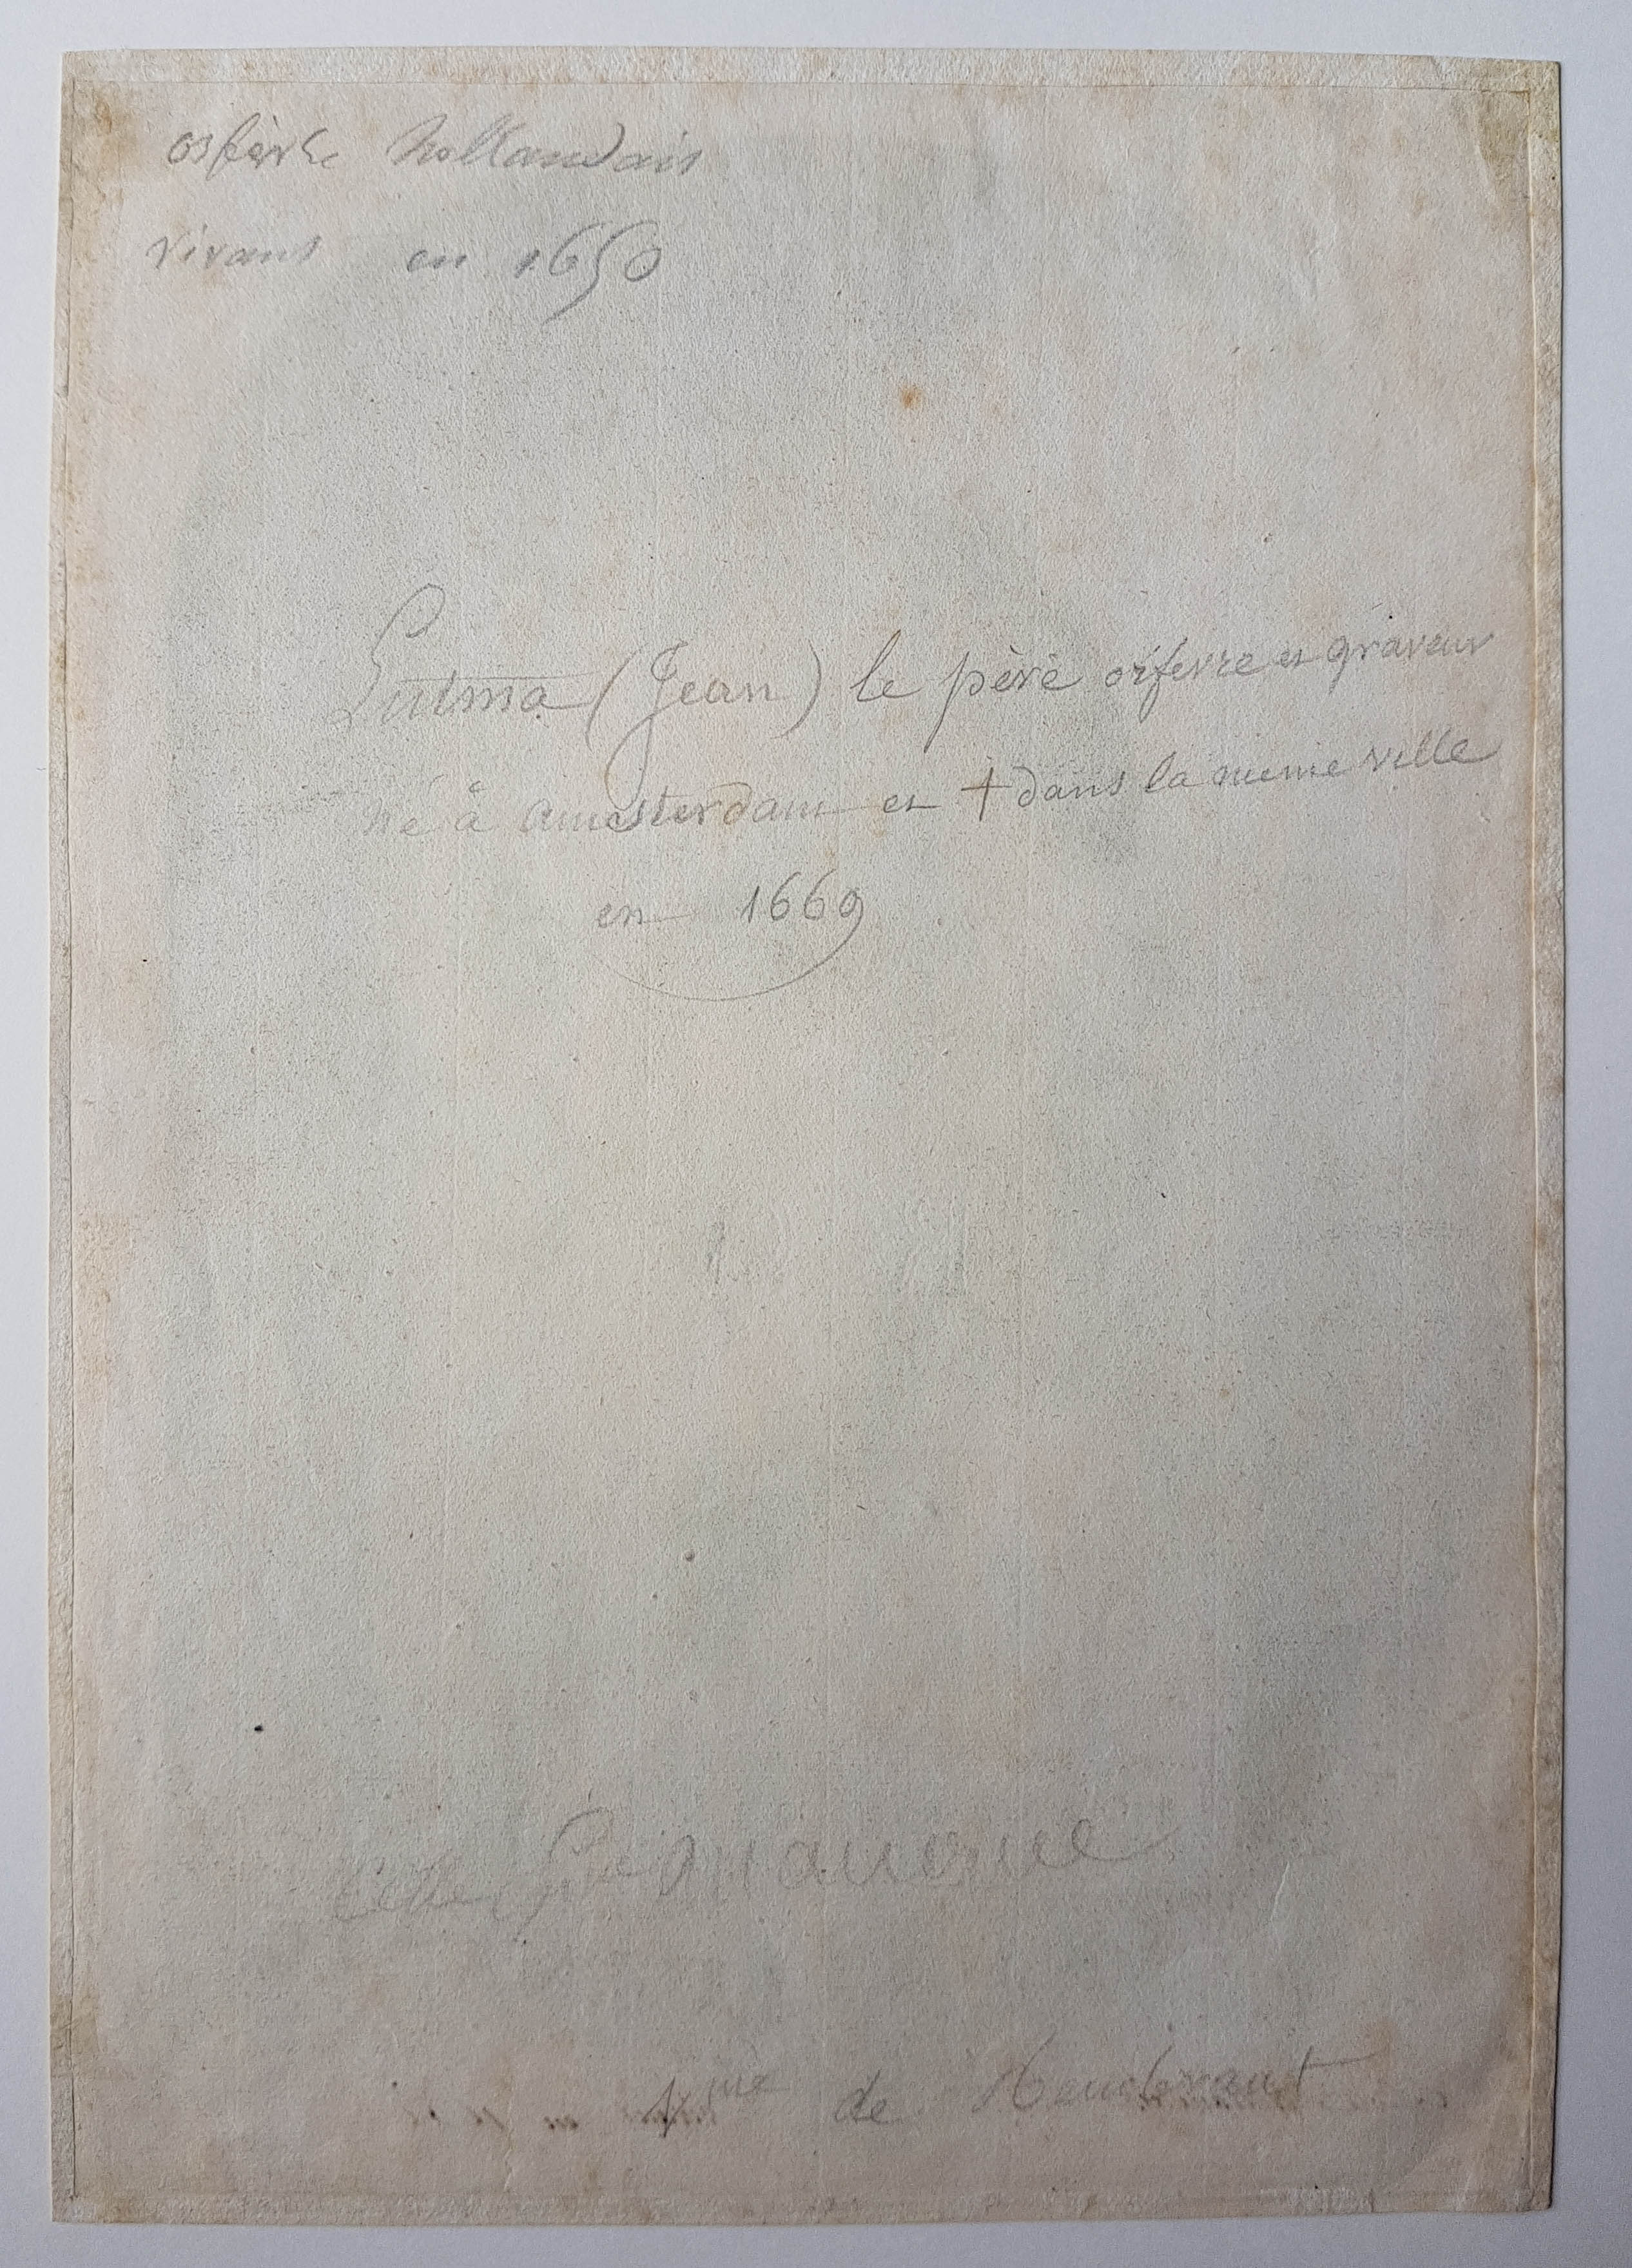 orfèvre hollandais
vivant en 1650
Lutma (Jean) le père orfevre et graveur
né à amesterdam et + dans la meme ville
en 1669
de Rembrant